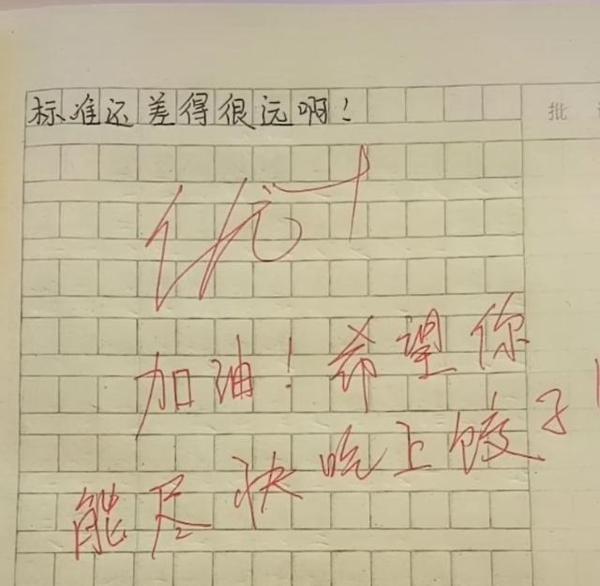 标准还差得很远啊！
批
优+
加油！希望你
能尽快吃上饺子！